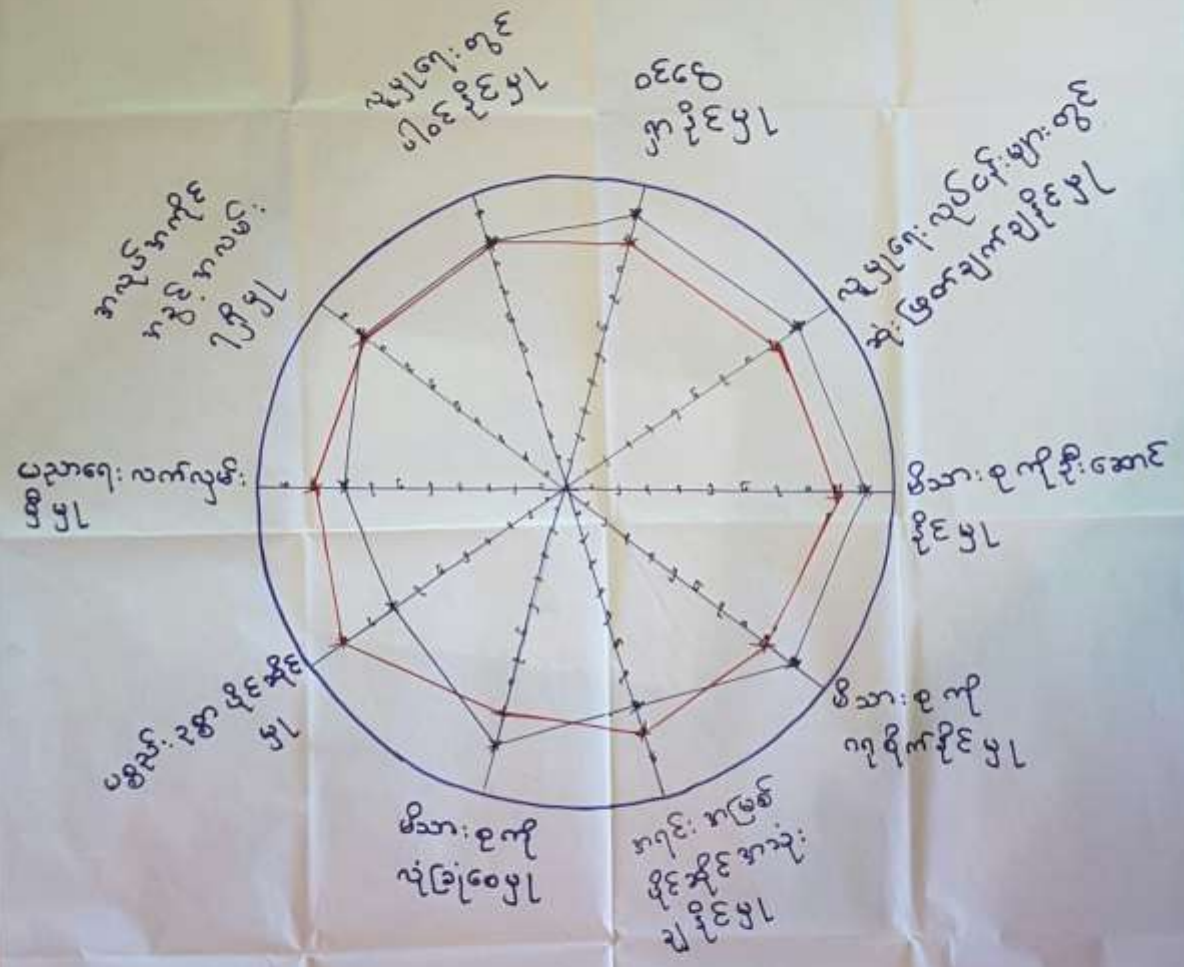 လူမှုရေးတွင်
ပါဝင်နိုင်မှု
ဝင်ငွေ
ရှာနိုင်မှု
လူမှုရေးလုပ်ငန်းများတွင်
ဆုံးဖြတ်ချက်ချနိုင်မှု
မိသားစုကိုဦးဆောင်
နိုင်မှု
မိသားစုကို
ဂရုစိုက်နိုင်မှု
အရင်းအမြစ်
ပိုင်ဆိုင်အသုံး
ချနိုင်မှု
မိသားစုကို
လုံခြုံစေမှု
ပစ္စည်းဥစ္စာပိုင်ဆိုင်
မှု
ပညာရေးလက်လှမ်း
မှီမှု
အလုပ်အကိုင်
အခွင့်အလမ်း
ရရှိမှု